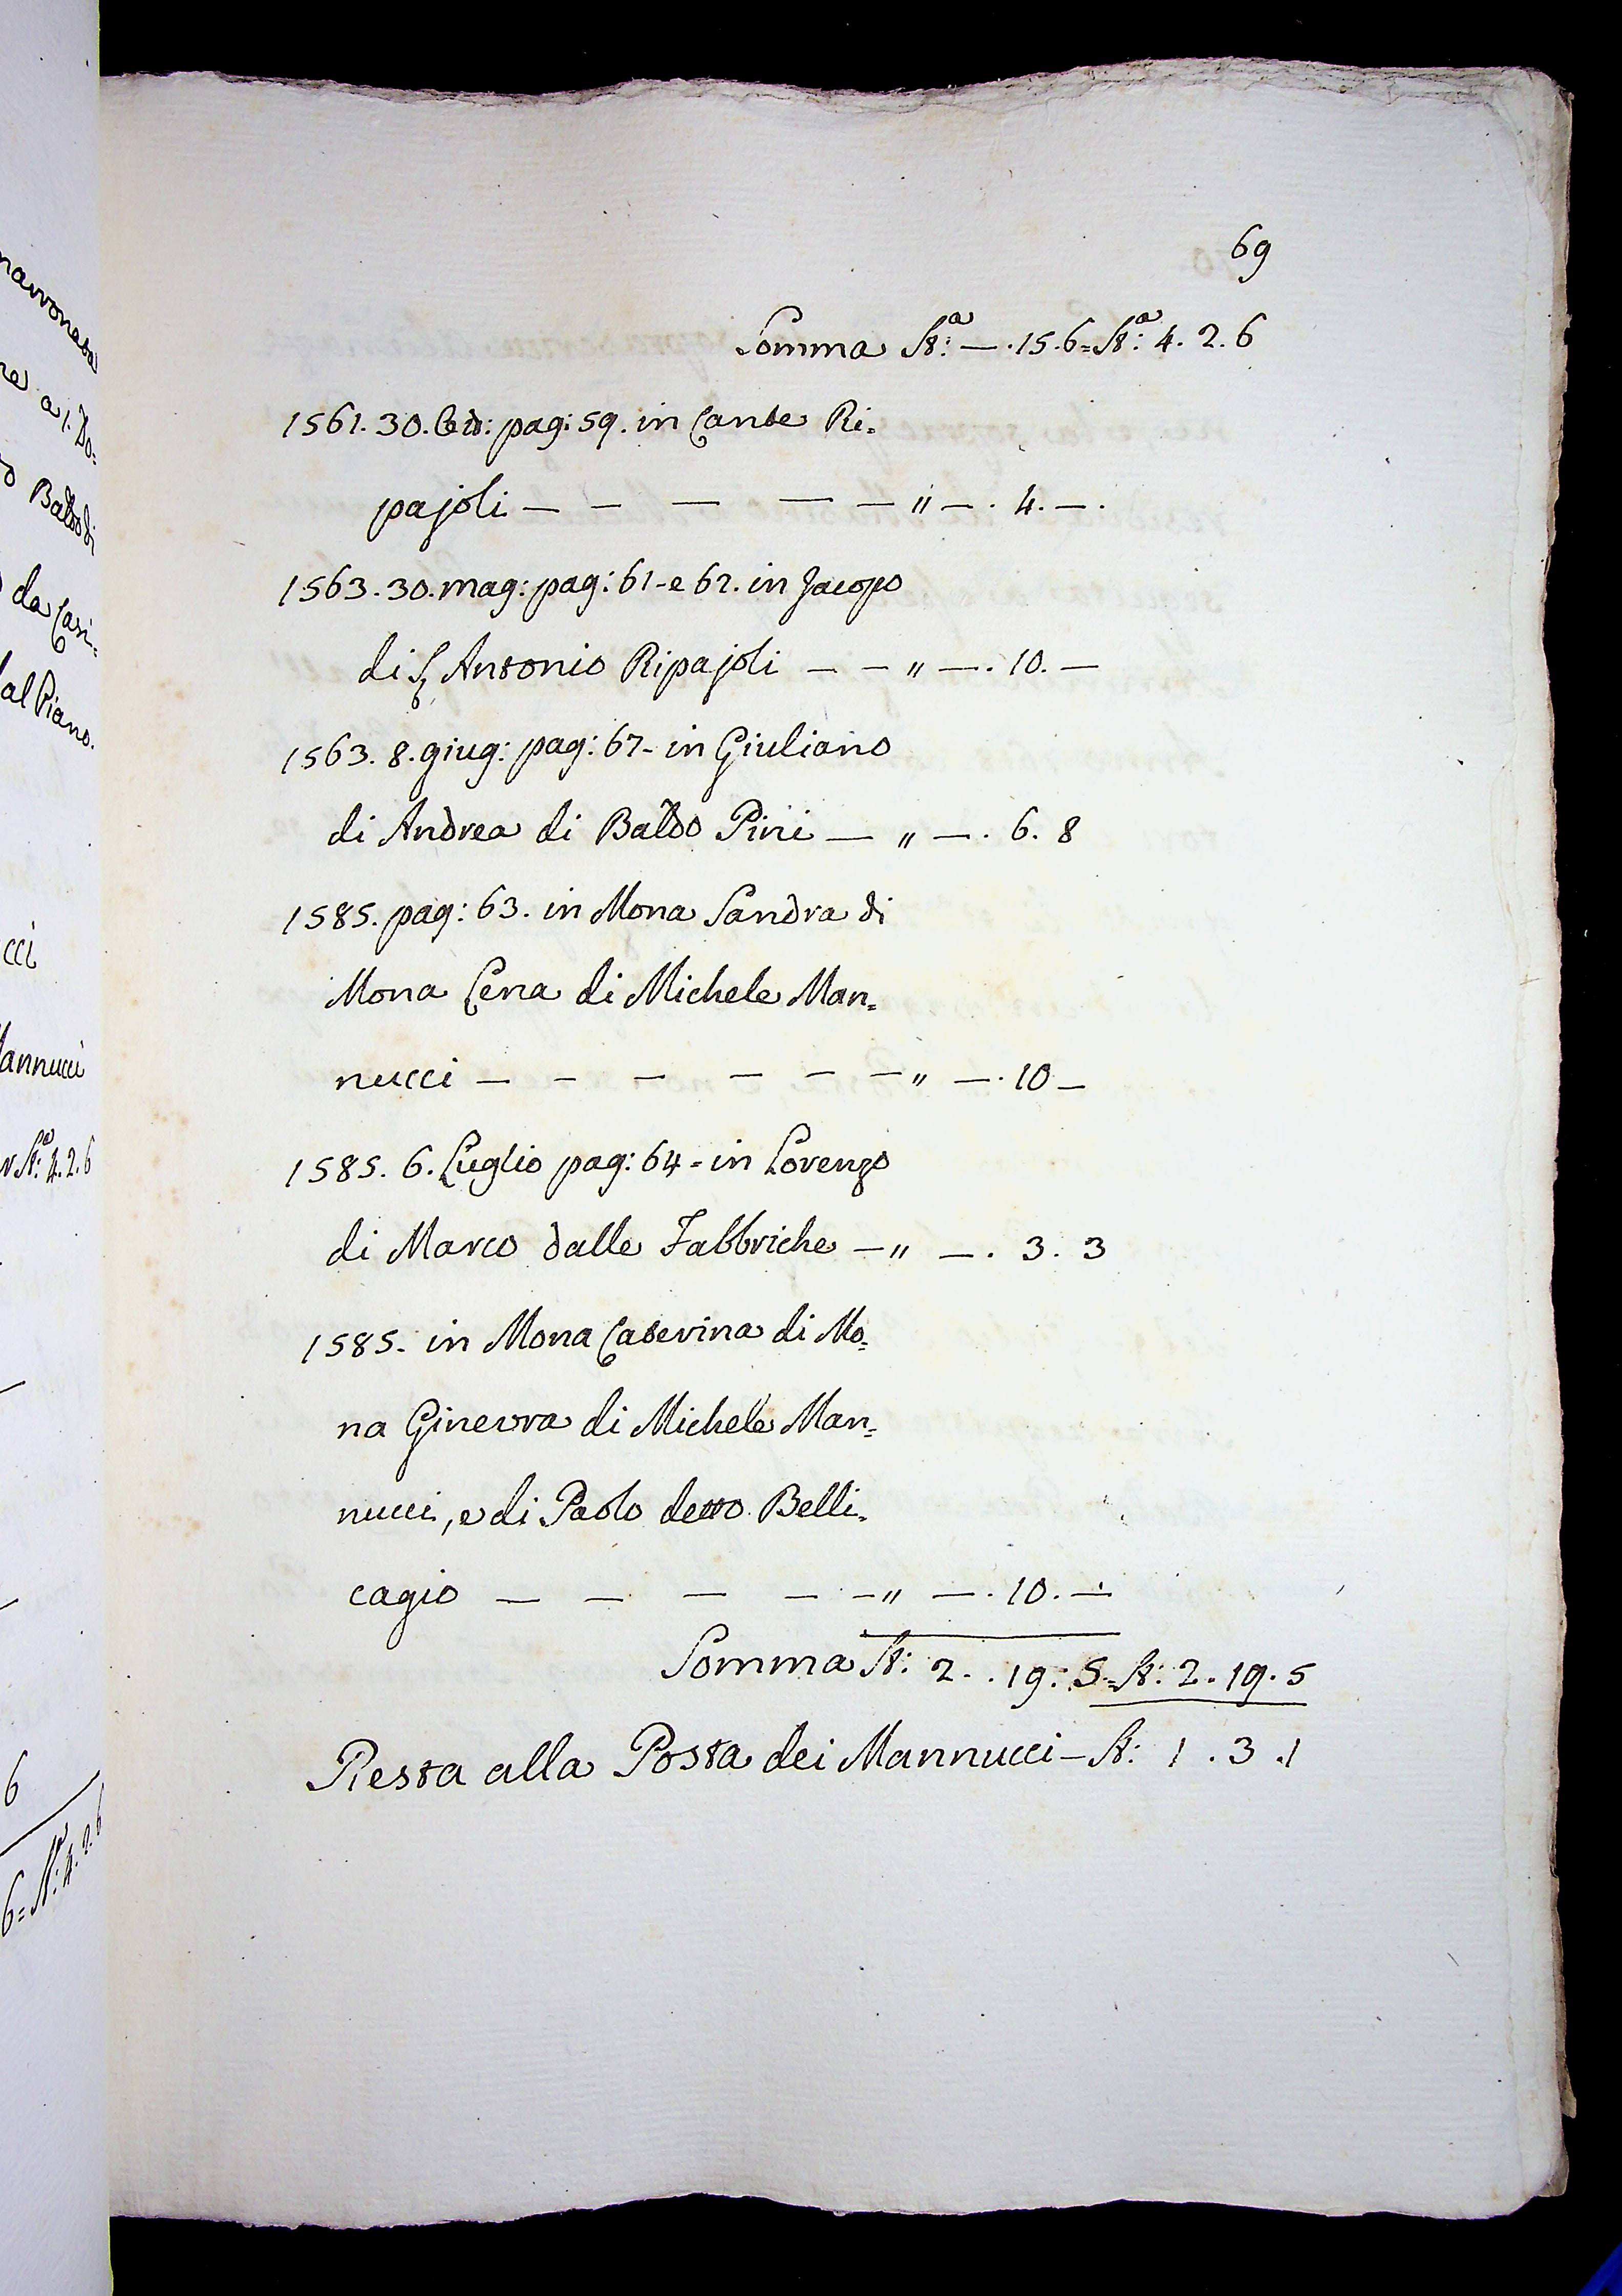 69
Somma St:ª —.15.6=St:ª 4.2.6
1561. 30. pag: 59. in Cante Ri=
pajoli — — — — — " —. 4. —.
1563. 30. mag: pag: 61. e 62. in Jacopo
di S. Antonio Ripajoli — — " —. 10. —
1563. 8. giug: pag: 67. in Giuliano
di Andrea di Baldo Pini — " —. 6. 8
1585. pag: 63. in Mona Sandra di
Mona Lena di Michele Man=
nucci — — — — — — " —. 10 —
1585. 6. Luglio pag: 64 = in Lorenzo
di Marco dalle Fabbriche — " —. 3. 3
1585. in Mona Caterina di Mo=
na Ginevra di Michele Man=
nucci, e di Paolo detto Belli=
cagio — — — — — " —. 10. —
Somma St: 2. . 19: 5.=St: 2. 19. 5
Resta alla Posta dei Mannucci — St: 1. 3. 1
cci
Mannucci
St:ª 4.2.6
da Casi=
al Piano.
6
6=St:ª 4.2.6